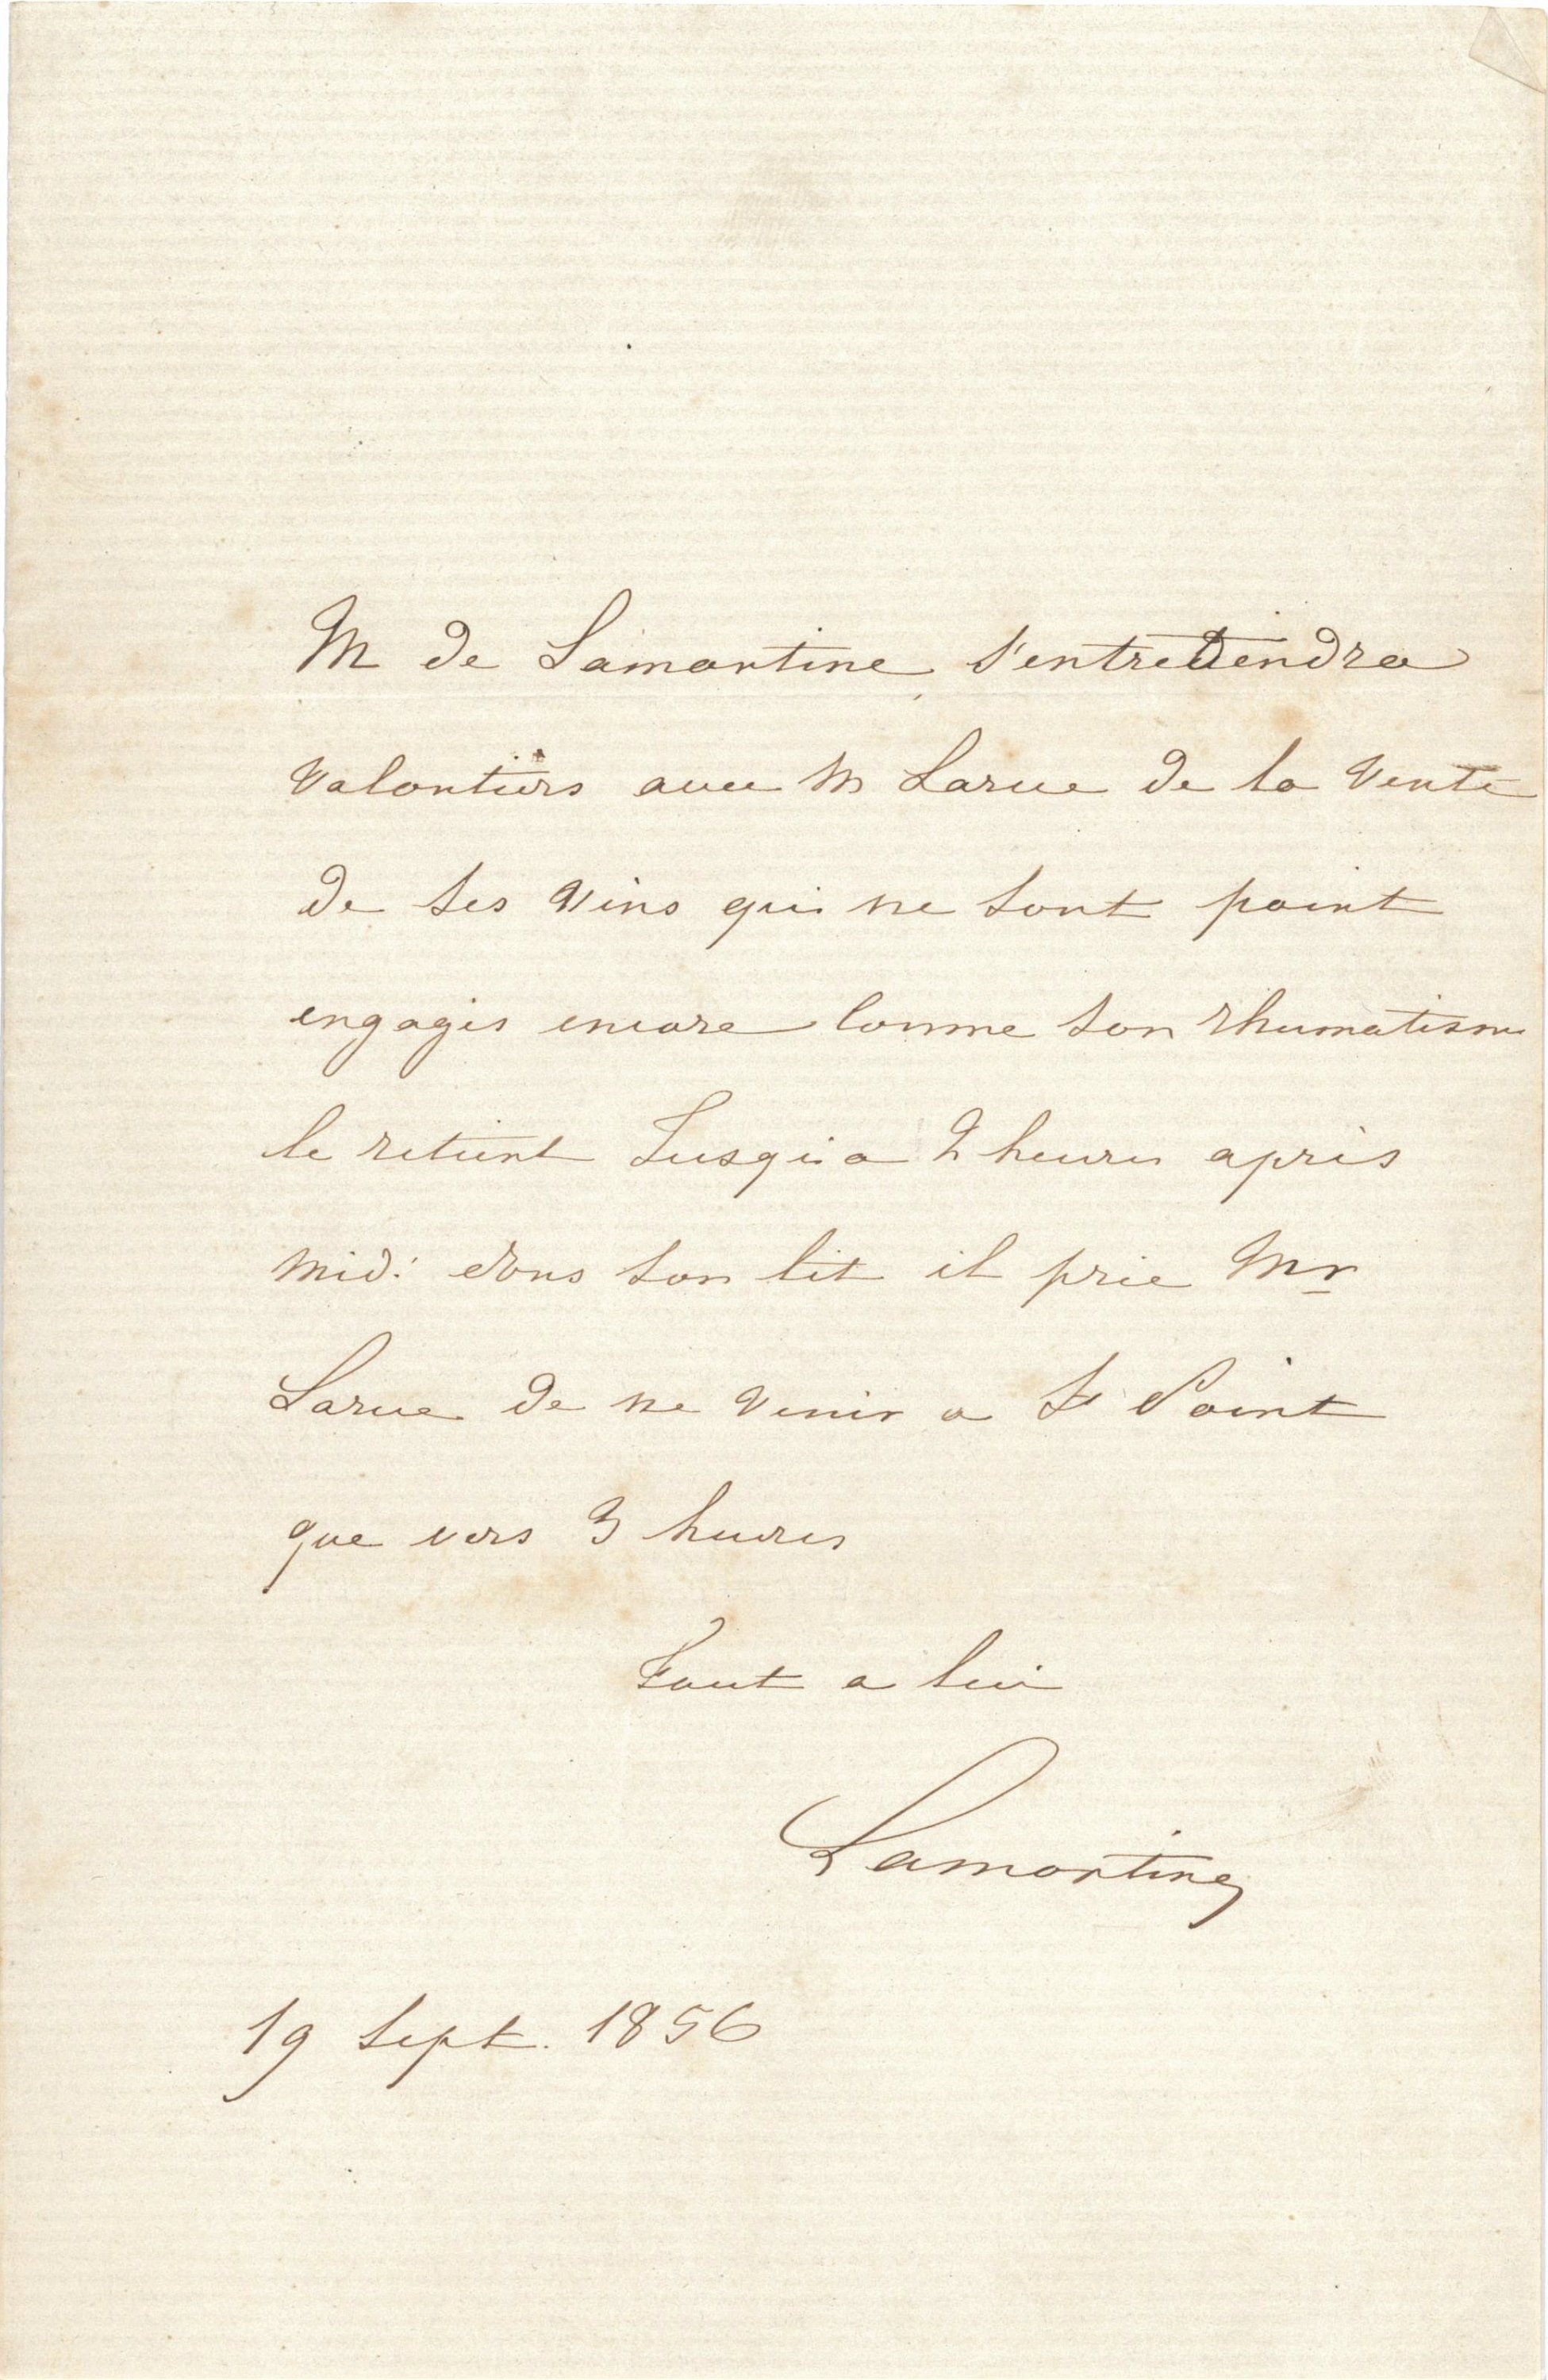 M de Lamartine s'entretiendra
volontiers avec M Larue de la vente
de ses vins qui ne sont point
engagés encore comme son rhumatisme
le retient jusqu'a 2 heures après
midi dans son lit il prie Mr
Larue de ne venir a St Point
que vers 3 heures
Tout a lui
Lamartine
19 sept. 1856